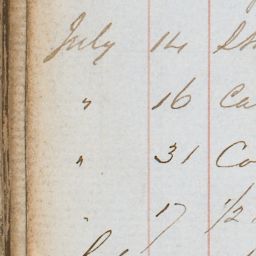 July 14
" 16 Ca
" 31 Co
" 17 1/2